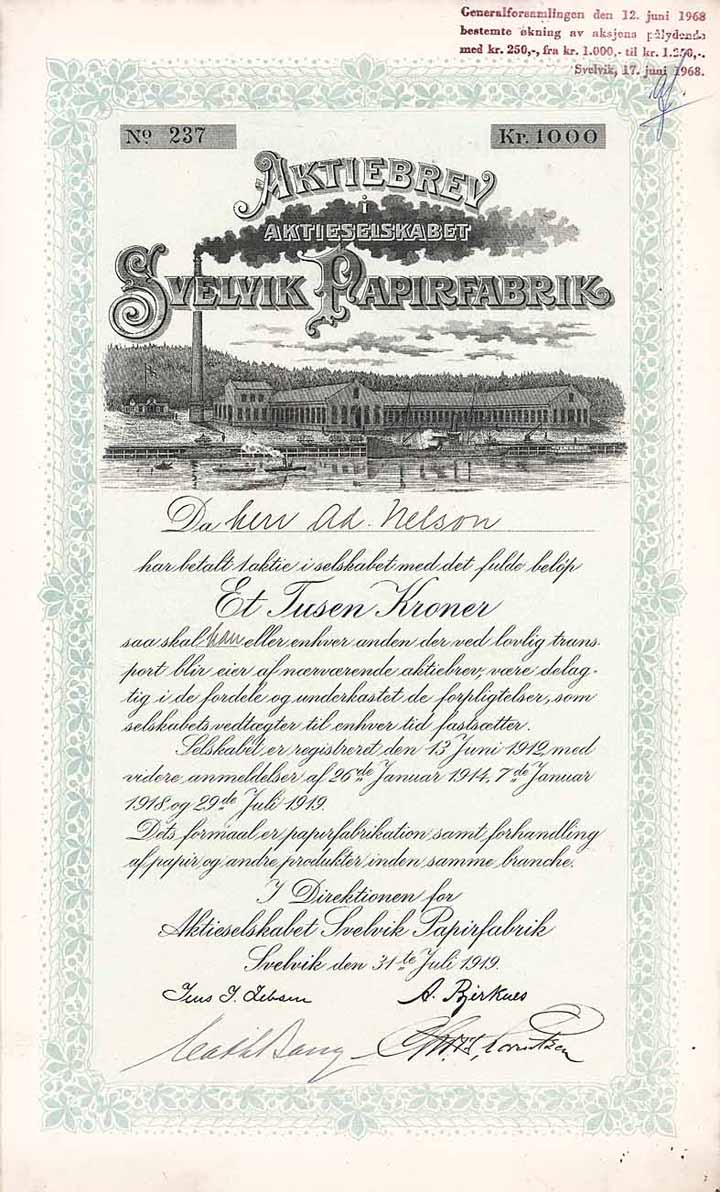 Generalforsamlingen den 12. juni 1968
bestemte økning av aksjens pålydende
med kr. 250,-, fra kr. 1.000,- til kr. 1.250,-.
Svelvik, 17. juni 1968.
No 237
Kr. 1000
AKTIEBREV
i
AKTIESELSKABET
SVELVIK PAPIRFABRIK
Da herr Ad. Nelson
har betalt 1 aktie i selskabet med det fulde beløp
Et Tusen Kroner
saa skal han eller enhver anden der ved lovlig trans-
port blir eier af nærværende aktiebrev, være delag-
tig i de fordele og underkastet de forpligtelser, som
selskabets vedtægter til enhver tid fastsætter.
Selskabet er registreret den 13 Juni 1912, med
videre anmeldelser af 26de Januar 1914, 7de Januar
1918 og 29de Juli 1919.
Dets formaal er papirfabrikation samt forhandling
af papir og andre produkter inden samme branche.
I Direktionen for
Aktieselskabet Svelvik Papirfabrik
Svelvik den 31te Juli 1919.
Jens J. Jebsen A. Bjerknes